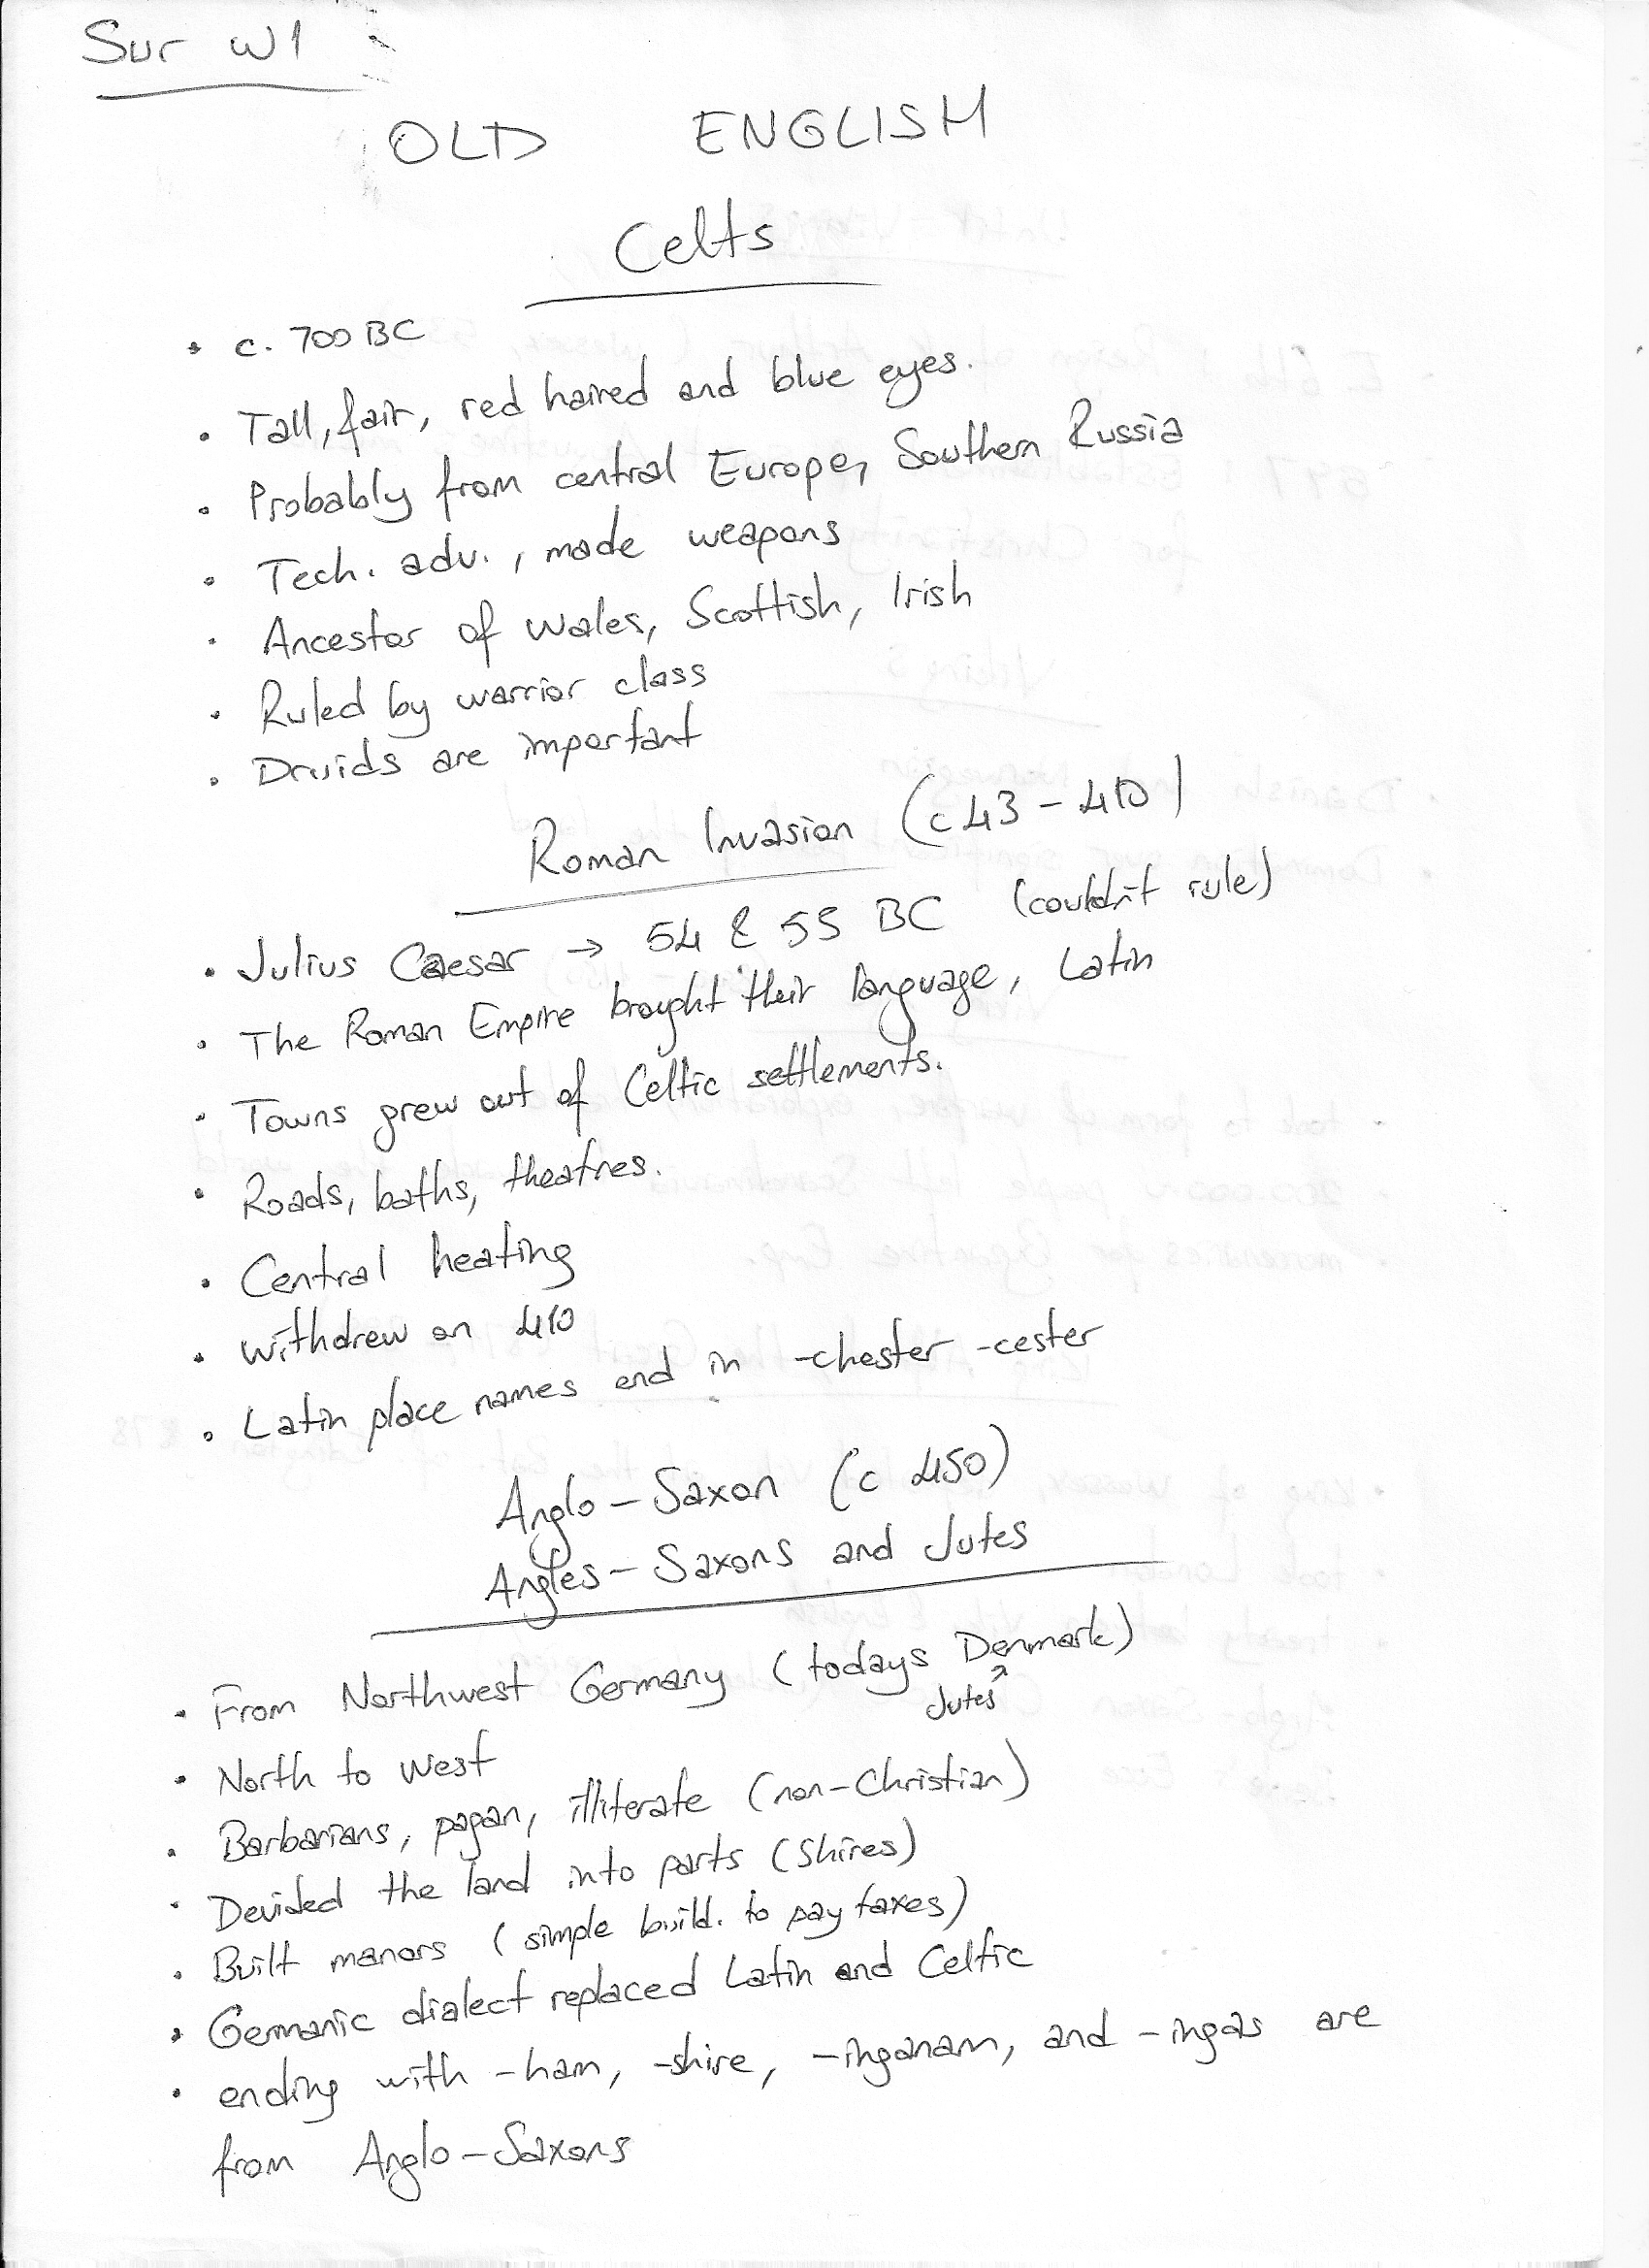 Sur W1
OLD ENGLISH
Celts
• c. 700 BC
• Tall, fair, red haired and blue eyes.
• Probably from central Europe, Southern Russia
• Tech. adv., made weapons
• Ancestor of Wales, Scottish, Irish
• Ruled by warrior class
• Druids are important
Roman Invasion (c 43 - 410)
• Julius Caesar → 54 & 55 BC (couldn't rule)
• The Roman Empire brought their language, Latin
• Towns grew out of Celtic settlements.
• Roads, baths, theatres.
• Central heating
• Withdrew on 410
• Latin place names end in -chester -cester
Anglo - Saxon (c 450)
Angles - Saxons and Jutes
• From Northwest Germany (todays Denmark)
Jutes
• North to West
• Barbarians, pagan, illiterate (non-Christian)
• Devided the land into parts (Shires)
• Built manors (simple build. to pay taxes)
• Germanic dialect replaced Latin and Celtic
• ending with -ham, -shire, -inganam, and -ingas are
from Anglo-Saxons